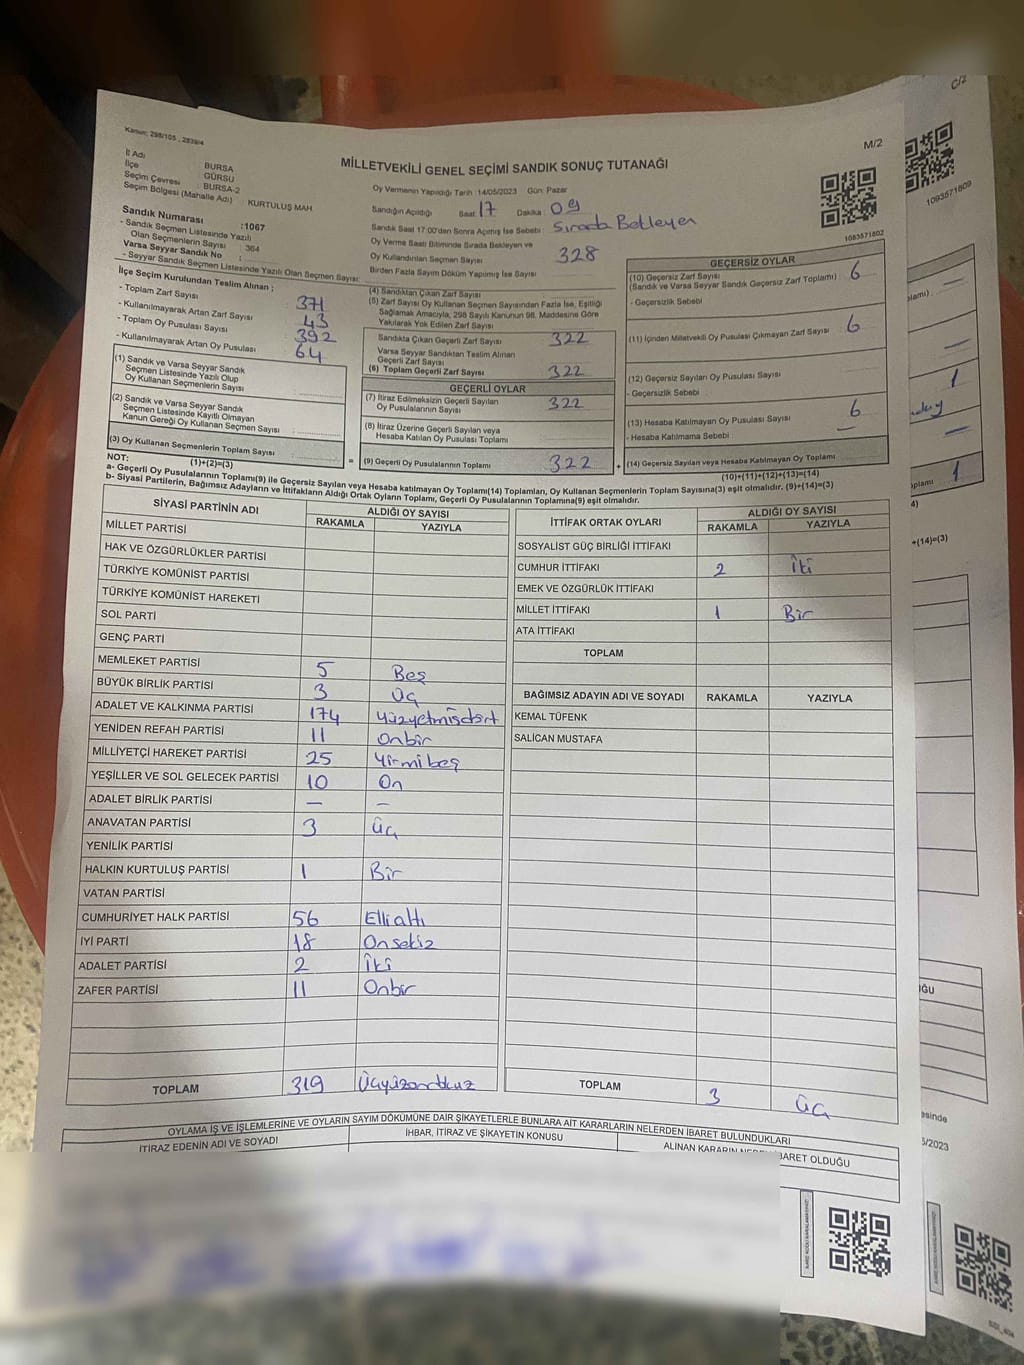 C/2
1093571609
Kanun: 298/105 , 2839/4
M/2
MİLLETVEKİLİ GENEL SEÇİMİ SANDIK SONUÇ TUTANAĞI
İl Adı : BURSA
İlçe : GÜRSU
Seçim Çevresi : BURSA-2
Seçim Bölgesi (Mahalle Adı) : KURTULUŞ MAH
Oy Vermenin Yapıldığı Tarih :14/05/2023 Gün: Pazar
Sandığın Açıldığı Saat: 17 Dakika : 09
Sandık Saat 17:00'den Sonra Açılmış İse Sebebi : Sırada Bekleyen
Oy Verme Saati Bitiminde Sırada Bekleyen ve
Oy Kullandırılan Seçmen Sayısı 328
Birden Fazla Sayım Döküm Yapılmış İse Sayısı
1083571802
Sandık Numarası :1067
- Sandık Seçmen Listesinde Yazılı
Olan Seçmenlerin Sayısı : 364
Varsa Seyyar Sandık No :
- Seyyar Sandık Seçmen Listesinde Yazılı Olan Seçmen Sayısı:
İlçe Seçim Kurulundan Teslim Alınan ;
- Toplam Zarf Sayısı 371
- Kullanılmayarak Artan Zarf Sayısı 43
- Toplam Oy Pusulası Sayısı 392
- Kullanılmayarak Artan Oy Pusulası 64
(1) Sandık ve Varsa Seyyar Sandık
Seçmen Listesinde Yazılı Olup
Oy Kullanan Seçmenlerin Sayısı
(2) Sandık ve Varsa Seyyar Sandık
Seçmen Listesinde Kayıtlı Olmayan
Kanun Gereği Oy Kullanan Seçmen Sayısı
(3) Oy Kullanan Seçmenlerin Toplam Sayısı
(1)+(2)=(3)
(4) Sandıktan Çıkan Zarf Sayısı
(5) Zarf Sayısı Oy Kullanan Seçmen Sayısından Fazla İse, Eşitliği
Sağlamak Amacıyla, 298 Sayılı Kanunun 98. Maddesine Göre
Yakılarak Yok Edilen Zarf Sayısı
Sandıkta Çıkan Geçerli Zarf Sayısı 322
Varsa Seyyar Sandıktan Teslim Alınan
Geçerli Zarf Sayısı
(6) Toplam Geçerli Zarf Sayısı 322
GEÇERLİ OYLAR
(7) İtiraz Edilmeksizin Geçerli Sayılan
Oy Pusulalarının Sayısı 322
(8) İtiraz Üzerine Geçerli Sayılan veya
Hesaba Katılan Oy Pusulası Toplamı
= (9) Geçerli Oy Pusulalarının Toplamı 322 +
GEÇERSİZ OYLAR
(10) Geçersiz Zarf Sayısı
(Sandık ve Varsa Seyyar Sandık Geçersiz Zarf Toplamı) : 6
- Geçersizlik Sebebi
(11) İçinden Milletvekili Oy Pusulası Çıkmayan Zarf Sayısı 6
(12) Geçersiz Sayılan Oy Pusulası Sayısı
- Geçersizlik Sebebi
(13) Hesaba Katılmayan Oy Pusulası Sayısı 6
- Hesaba Katılmama Sebebi —
(14) Geçersiz Sayılan veya Hesaba Katılmayan Oy Toplamı
(10)+(11)+(12)+(13)=(14)
NOT:
a- Geçerli Oy Pusulalarının Toplamı(9) ile Geçersiz Sayılan veya Hesaba Katılmayan Oy Toplamı(14) Toplamları, Oy Kullanan Seçmenlerin Toplam Sayısına(3) eşit olmalıdır. (9)+(14)=(3)
b- Siyasi Partilerin, Bağımsız Adayların ve İttifakların Aldığı Ortak Oyların Toplamı, Geçerli Oy Pusulalarının Toplamına(9) eşit olmalıdır.
SİYASİ PARTİNİN ADI ALDIĞI OY SAYISI
RAKAMLA YAZIYLA
MİLLET PARTİSİ
HAK VE ÖZGÜRLÜKLER PARTİSİ
TÜRKİYE KOMÜNİST PARTİSİ
TÜRKİYE KOMÜNİST HAREKETİ
SOL PARTİ
GENÇ PARTİ
MEMLEKET PARTİSİ 5 Beş
BÜYÜK BİRLİK PARTİSİ 3 Üç
ADALET VE KALKINMA PARTİSİ 174 Yüzyetmişdört
YENİDEN REFAH PARTİSİ 11 Onbir
MİLLİYETÇİ HAREKET PARTİSİ 25 Yirmibeş
YEŞİLLER VE SOL GELECEK PARTİSİ 10 On
ADALET BİRLİK PARTİSİ — —
ANAVATAN PARTİSİ 3 Üç
YENİLİK PARTİSİ
HALKIN KURTULUŞ PARTİSİ 1 Bir
VATAN PARTİSİ
CUMHURİYET HALK PARTİSİ 56 Ellialtı
İYİ PARTİ 18 Onsekiz
ADALET PARTİSİ 2 İki
ZAFER PARTİSİ 11 Onbir
TOPLAM 319 Üçyüzondokuz
İTTİFAK ORTAK OYLARI ALDIĞI OY SAYISI
RAKAMLA YAZIYLA
SOSYALİST GÜÇ BİRLİĞİ İTTİFAKI
CUMHUR İTTİFAKI 2 İki
EMEK VE ÖZGÜRLÜK İTTİFAKI
MİLLET İTTİFAKI 1 Bir
ATA İTTİFAKI
TOPLAM
BAĞIMSIZ ADAYIN ADI VE SOYADI RAKAMLA YAZIYLA
KEMAL TÜFENK
SALİCAN MUSTAFA
TOPLAM 3 Üç
OYLAMA İŞ VE İŞLEMLERİNE VE OYLARIN SAYIM DÖKÜMÜNE DAİR ŞİKAYETLERLE BUNLARA AİT KARARLARIN NELERDEN İBARET BULUNDUKLARI
İTİRAZ EDENİN ADI VE SOYADI İHBAR, İTİRAZ VE ŞİKAYETİN KONUSU ALINAN KARARIN BARET OLDUĞU
lamı) :
1
plamı 1
4)
+(14)=(3)
ĞU
esinde
5/2023